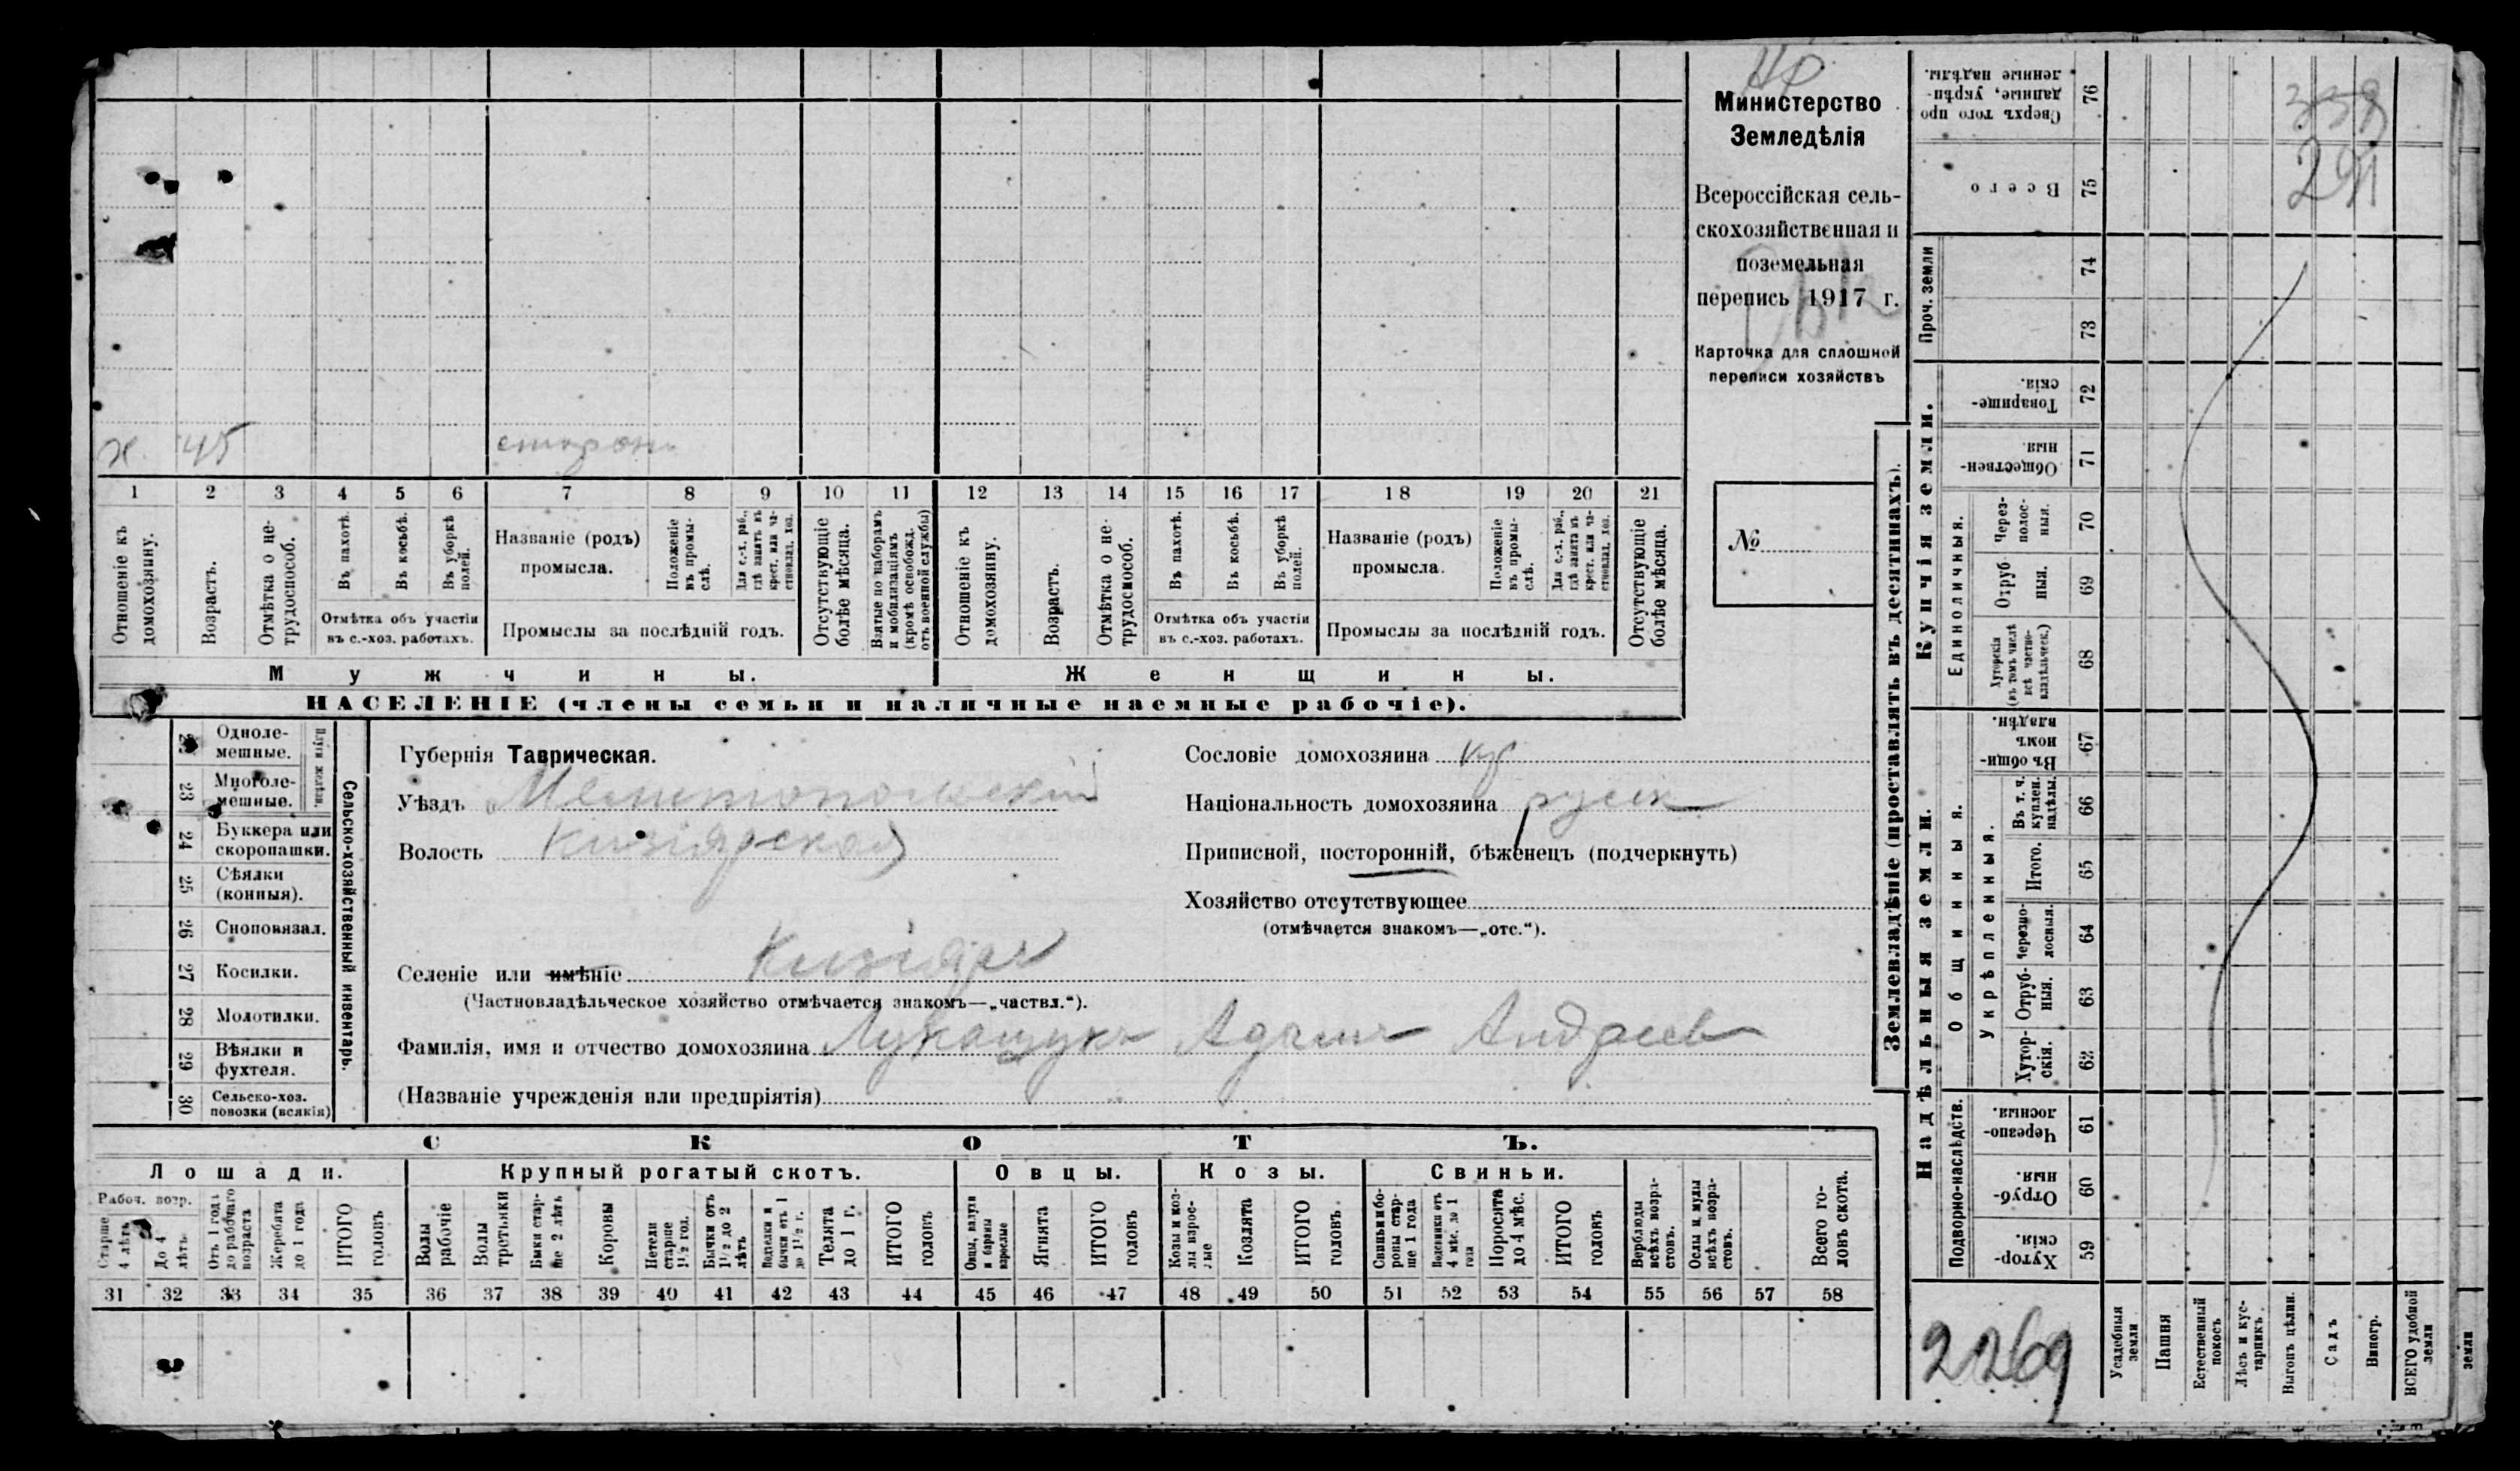 х. 45 сторож
1 2 3 4 5 6 7 8 9 10 11 12 13 14 15 16 17 18 19 20 21
Отношеніе къ домохозяину.
Возрастъ.
Отмѣтка о нетрудоспособ.
Въ пахотѣ.
Въ косьбѣ.
Въ уборкѣ полей.
Отмѣтка объ участіи
въ с.-хоз. работахъ.
Названіе (родъ)
промысла.
Положеніе въ промыслѣ.
Для с.-х. раб., гдѣ занятъ въ крест. или частновлад. хоз.
Промыслы за послѣдній годъ.
Отсутствующіе болѣе мѣсяца.
Взятые по наборамъ и мобилизаціямъ (кромѣ освобожд. отъ военной службы)
Отношеніе къ домохозяину.
Возрастъ.
Отмѣтка о нетрудоспособ.
Въ пахотѣ.
Въ косьбѣ.
Въ уборкѣ полей.
Отмѣтка объ участіи
въ с.-хоз. работахъ.
Названіе (родъ)
промысла.
Положеніе въ промыслѣ.
Для с.-х. раб., гдѣ занята въ крест. или частновлад. хоз.
Промыслы за послѣдній годъ.
Отсутствующіе болѣе мѣсяца.
Мужчины. Женщины.
НАСЕЛЕНІЕ (члены семьи и наличные наемные рабочіе).
Министерство
Земледѣлія
Всероссійская сель-
скохозяйственная и
поземельная
перепись 1917 г.
Карточка для сплошной
переписи хозяйствъ
№
Сельско-хозяйственный инвентарь.
Плуги желѣзн.
22 Одноле-
мешные.
23 Многоле-
мешные.
24 Буккера или
скоропашки.
25 Сѣялки
(конныя).
26 Сноповязал.
27 Косилки.
28 Молотилки.
29 Вѣялки и
фухтеля.
30 Сельско-хоз.
повозки (всякія)
Губернія Таврическая.
Уѣздъ Мелитопольскій
Волость Кизіярская
Селеніе или имѣніе Кизіяръ
(Частновладѣльческое хозяйство отмѣчается знакомъ—„частвл.“).
Фамилія, имя и отчество домохозяина Лукащукъ Адамъ Андреев
(Названіе учрежденія или предпріятія)
Сословіе домохозяина кр
Національность домохозяина русск
Приписной, посторонній, бѣженец (подчеркнуть)
Хозяйство отсутствующее
(отмѣчается знакомъ—„отс.“).
СКОТЪ.
Лошади. Крупный рогатый скотъ. Овцы. Козы. Свиньи.
Рабоч. возр.
Старше 4 лѣтъ
До 4 лѣтъ
Отъ 1 года до рабочаго возраста
Жеребята до 1 года
ИТОГО головъ
Волы рабочіе
Волы третьяки
Быки старше 2 лѣтъ
Коровы
Нетели старше 1½ год.
Бычки отъ 1½ до 2 лѣтъ
Подтелки и бычки отъ 1 до 1½ г.
Телята до 1 г.
ИТОГО головъ
Овцы, валухи и бараны взрослые
Ягнята
ИТОГО головъ
Козы и козлы взрослые
Козлята
ИТОГО головъ
Свиньи и боровы старше 1 года
Подсвинки отъ 4 мѣс. до 1 года
Поросята до 4 мѣс.
ИТОГО головъ
Верблюды всѣхъ возрастовъ.
Ослы и мулы всѣхъ возрастовъ.
Всего головъ скота.
31 32 33 34 35 36 37 38 39 40 41 42 43 44 45 46 47 48 49 50 51 52 53 54 55 56 57 58
Землевладѣніе (проставлять въ десятинахъ).
Купчія земли.
Надѣльныя земли.
Сверхъ того проданные, укрѣпленные надѣлы. 76
Всего 75
Проч. земли
74
73
Товарищескія. 72
Общественныя. 71
Единоличныя.
Черезполосныя. 70
Отрубныя. 69
Хуторскія (въ томъ числѣ всѣ частновладѣльческ.) 68
Общинныя.
Въ общинномъ владѣн. 67
Укрѣпленныя.
Въ т. ч. куплен. надѣлы. 66
Итого. 65
Черезполосныя. 64
Отрубныя. 63
Хуторскія. 62
Подворно-наслѣдств.
Черезполосныя. 61
Отрубныя. 60
Хуторскія. 59
338
291
2269
Усадебныя земли
Пашня
Естественный покосъ
Лѣсъ и кустарникъ.
Выгонъ цѣлин.
Садъ
Виногр.
ВСЕГО удобной земли
земли